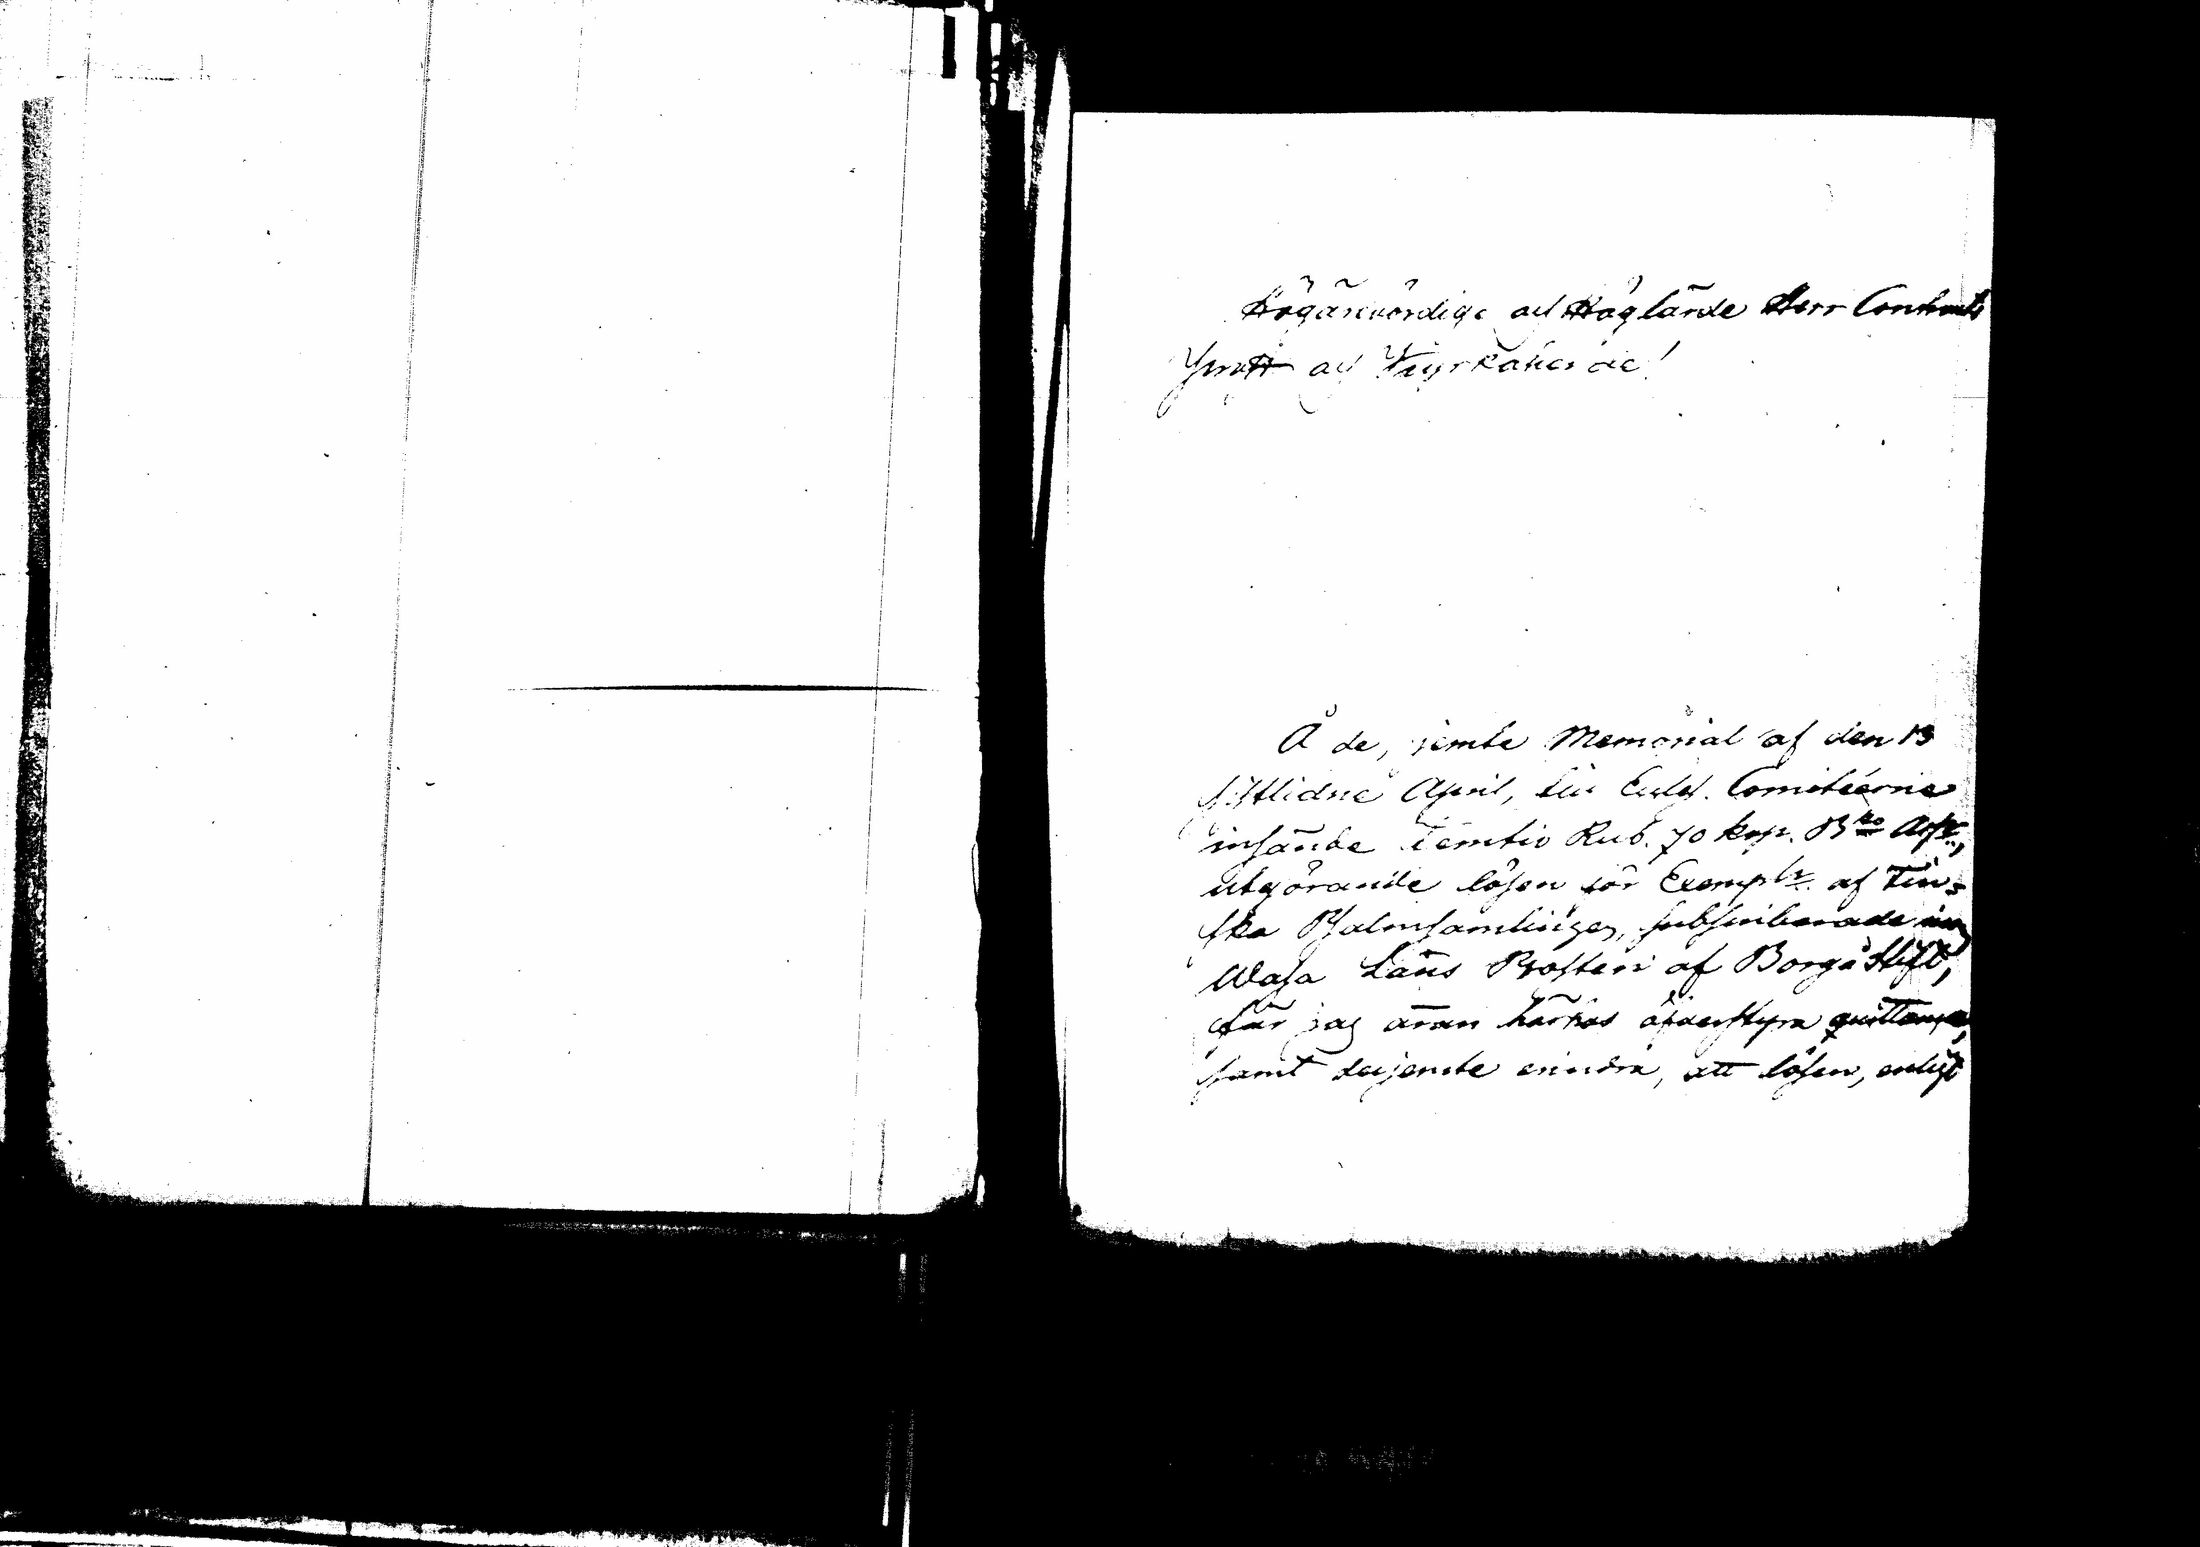 Högärevördige och Höglärde Herr Contracts
Prost och Kyrkoherde!
Å de, jemte Memorial af den 13
sistlidne April, till Eccles. Comitéerne
insände Femtio Rub. 70 kop. B:co Ass:r,
utgörande lösen för Exempl:r af Fin-
ska Psalmsamlingen, subscriberade inom
Wasa Läns Prosteri af Borgå Stift,
får jag äran härhos öfverstyra quittance,
samt derjemte erindra, att lösen, enligt